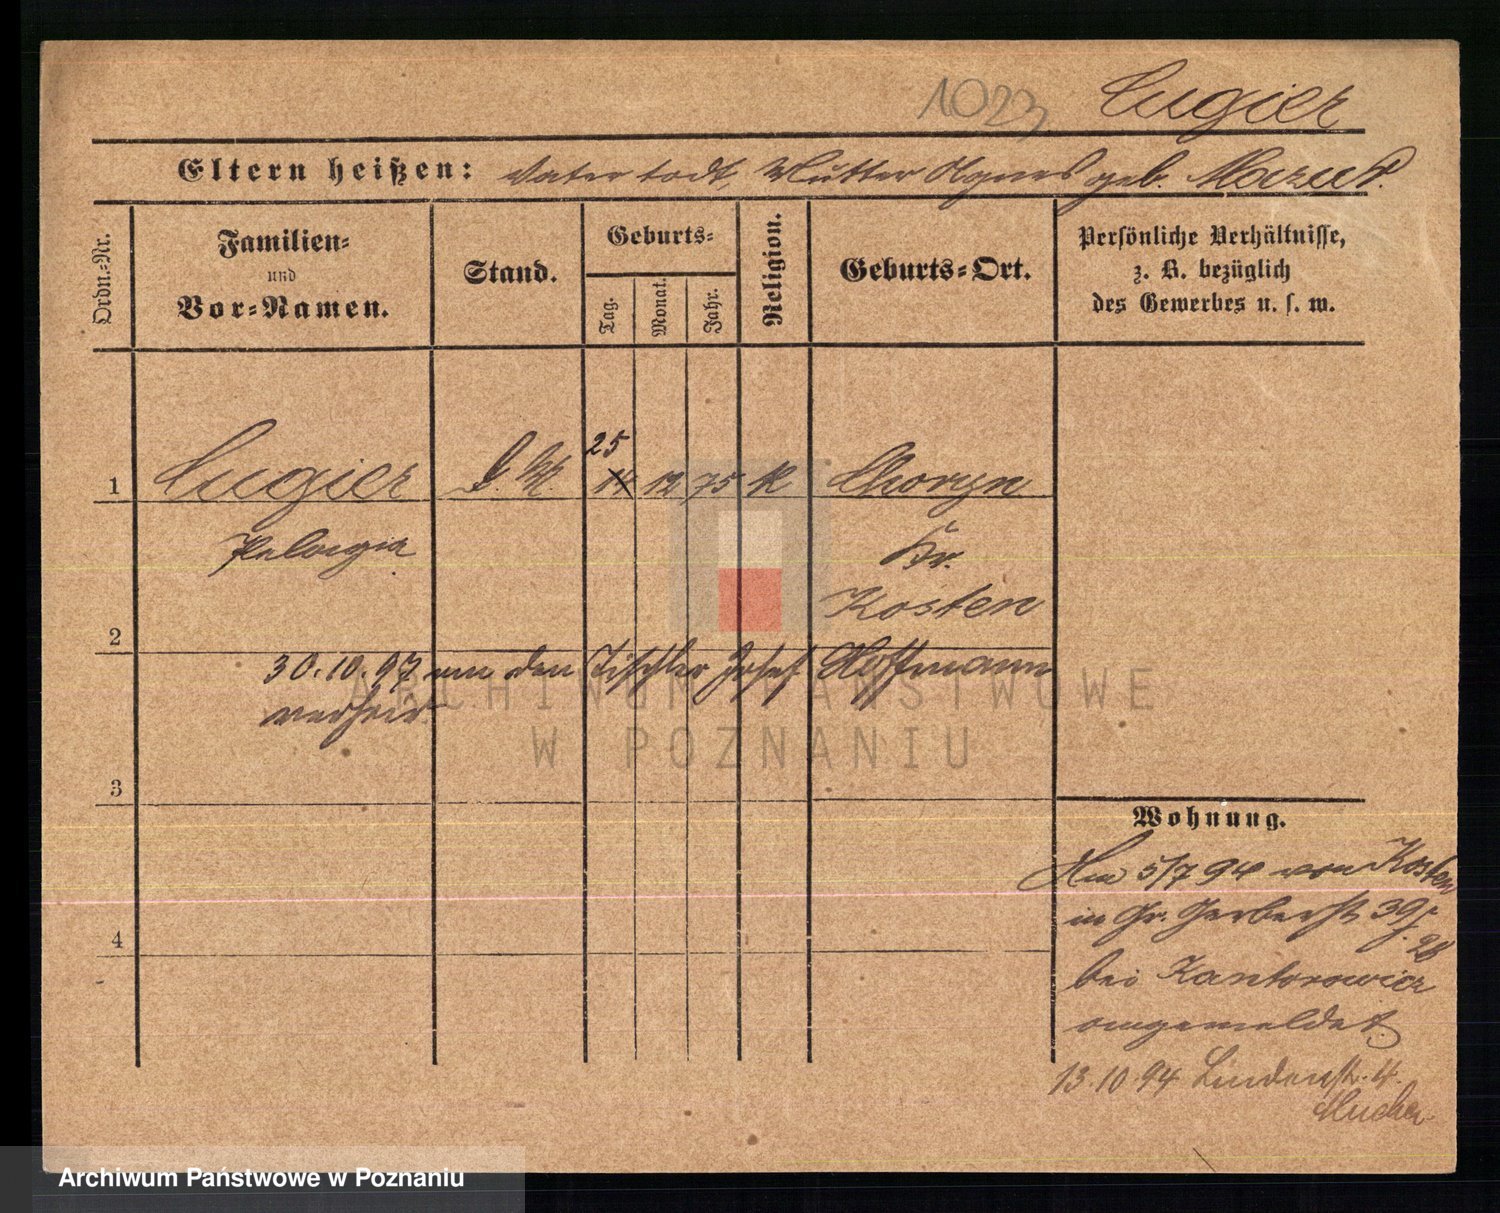 1023 Cugier
Eltern heißen: Vater todt, Mutter Agnes geb.
Ordn.-Nr.
Familien-
und
Vor-Namen.
Stand.
Geburts-
Tag.
Monat.
Jahr.
Religion.
Geburts-Ort.
Persönliche Verhältnisse,
z. B. bezüglich
des Gewerbes u. s. w.
25
1 Cugier 14 12 75 k Choryn
Pelagia Kr.
Kosten
2
30.10.97 an den Tischler Josef Hoffmann
verheir.
ARCHIWUM PAŃSTWOWE
W POZNANIU
3
Wohnung.
Am 5/7 94 von Kosten
in Gr. Gerberst 39
4
bei Kantorowicz
angemeldet.
13.10.94 Lindenstr. 4.
Archiwum Państwowe w Poznaniu